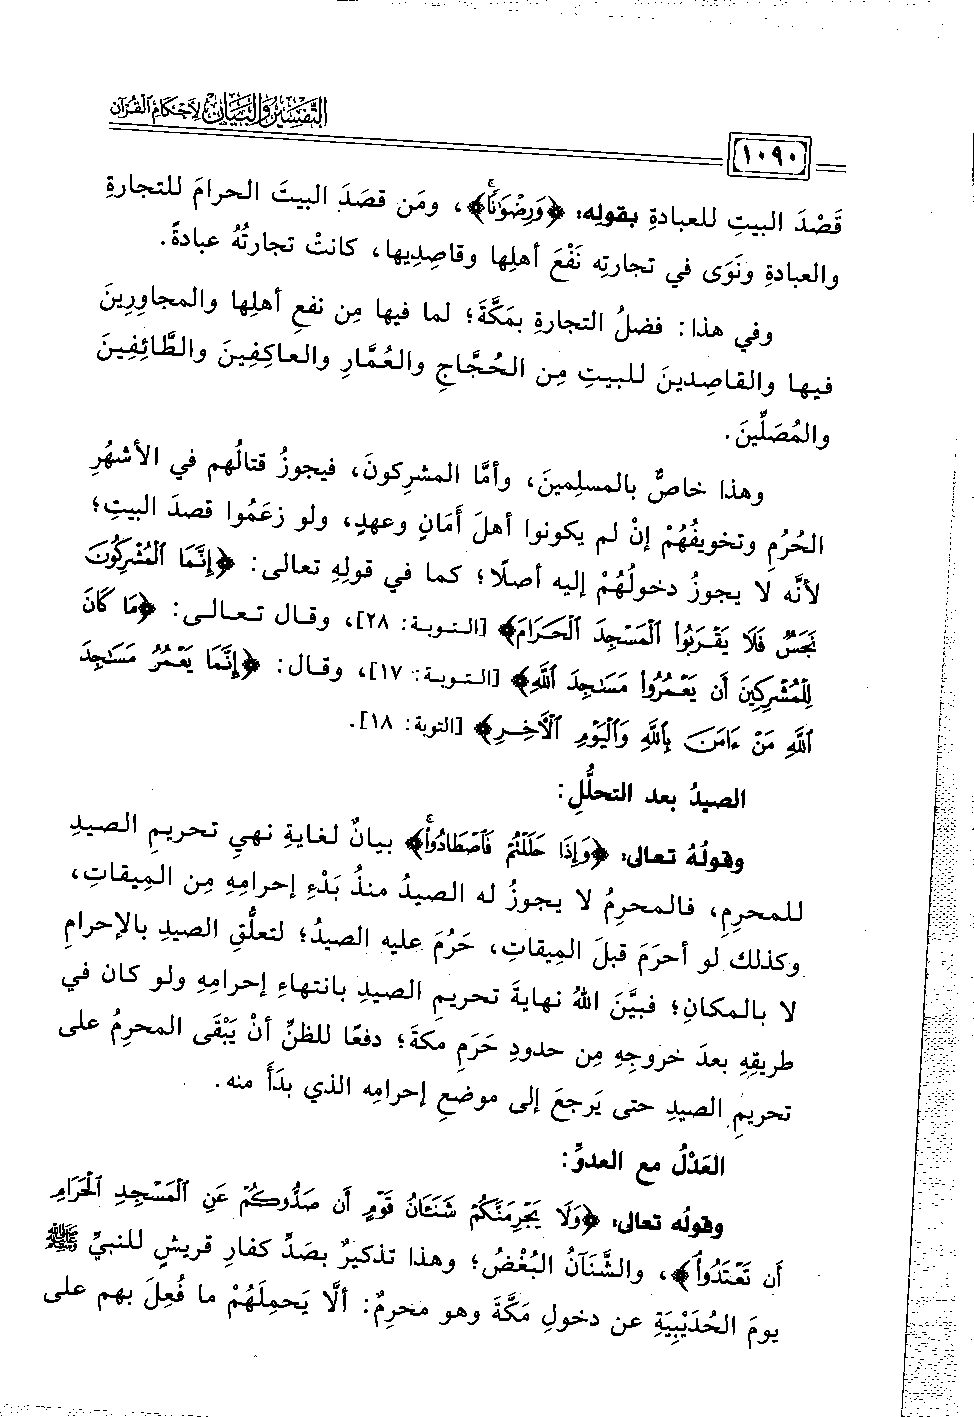 التفسير والبيان لأحكام القرآن
١٠٩٠
قَصْدَ البيتِ للعبادةِ بقولِه: ﴿وَرِضْوَٰنًا﴾، ومَن قصَدَ البيتَ الحرامَ للتجارةِ
والعبادةِ ونَوَى في تجارتِه نَفْعَ أهلِها وقاصِدِيها، كانتْ تجارتُهُ عبادةً.
وفي هذا: فضلُ التجارةِ بمَكَّةَ؛ لما فيها مِن نفعِ أهلِها والمجاوِرِينَ
فيها والقاصِدينَ للبيتِ مِن الحُجَّاجِ والعُمَّارِ والعاكِفِينَ والطَّائِفِينَ
والمُصَلِّينَ.
وهذا خاصٌّ بالمسلِمينَ، وأمَّا المشرِكونَ، فيجوزُ قتالُهم في الأشهُرِ
الحُرُمِ وتخويفُهُمْ إنْ لم يكونوا أهلَ أَمَانٍ وعهدٍ، ولو زعَمُوا قصدَ البيتِ؛
لأنَّه لا يجوزُ دخولُهُمْ إليه أصلًا؛ كما في قولِهِ تعالى: ﴿إِنَّمَا ٱلْمُشْرِكُونَ
نَجَسٌ فَلَا يَقْرَبُوا۟ ٱلْمَسْجِدَ ٱلْحَرَامَ﴾ [التوبة: ٢٨]، وقال تعالى: ﴿مَا كَانَ
لِلْمُشْرِكِينَ أَن يَعْمُرُوا۟ مَسَٰجِدَ ٱللَّهِ﴾ [التوبة: ١٧]، وقال: ﴿إِنَّمَا يَعْمُرُ مَسَٰجِدَ
ٱللَّهِ مَنْ ءَامَنَ بِٱللَّهِ وَٱلْيَوْمِ ٱلْـَٔاخِرِ﴾ [التوبة: ١٨].
الصيدُ بعد التحلُّلِ:
وقولُهُ تعالى: ﴿وَإِذَا حَلَلْتُمْ فَٱصْطَادُوا۟﴾ بيانٌ لغايةِ نهيِ تحريمِ الصيدِ
للمحرِمِ، فالمحرِمُ لا يجوزُ له الصيدُ منذُ بَدْءِ إحرامِهِ مِن المِيقاتِ،
وكذلك لو أحرَمَ قبلَ المِيقاتِ، حَرُمَ عليه الصيدُ؛ لتعلُّقِ الصيدِ بالإحرامِ
لا بالمكانِ؛ فبيَّنَ اللهُ نهايةَ تحريمِ الصيدِ بانتهاءِ إحرامِهِ ولو كان في
طريقِهِ بعدَ خروجِهِ مِن حدودِ حَرَمِ مكةَ؛ دفعًا للظنِّ أنْ يَبْقَى المحرِمُ على
تحريمِ الصيدِ حتى يَرجعَ إلى موضعِ إحرامِه الذي بدَأَ منه.
العَدْلُ مع العدوِّ:
وقولُه تعالى: ﴿وَلَا يَجْرِمَنَّكُمْ شَنَـَٔانُ قَوْمٍ أَن صَدُّوكُمْ عَنِ ٱلْمَسْجِدِ ٱلْحَرَامِ
أَن تَعْتَدُوا۟﴾، والشَّنَآنُ البُغْضُ؛ وهذا تذكيرٌ بصَدِّ كفارِ قريشٍ للنبيِّ ﷺ
يومَ الحُدَيْبِيَةِ عن دخولِ مَكَّةَ وهو محرِمٌ: ألَّا يَحمِلَهُمْ ما فُعِلَ بهم على